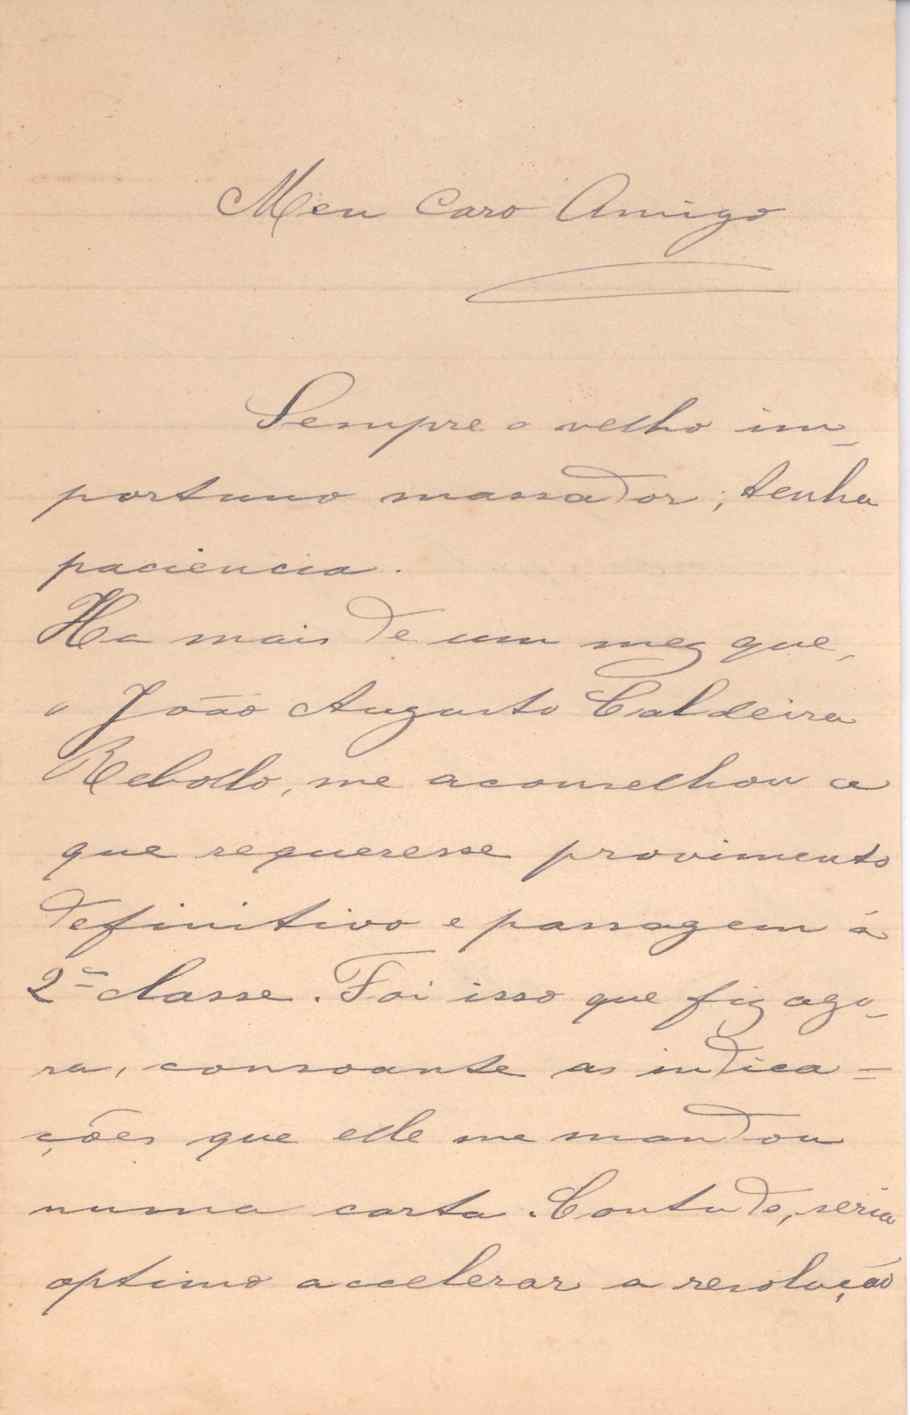 Meu Caro Amigo
Sempre o velho im-
portuno massador; tenha
paciencia.
Ha mais de um mez que,
o João Augusto Caldeira
Rebollo, me aconselhou a
que requeresse provimento
definitivo e passagem á
2ª classe. Foi isso que fiz ago-
ra, consoante as indica=
ções que elle me mandou
numa carta. Contudo, seria
optimo accelerar a resolução